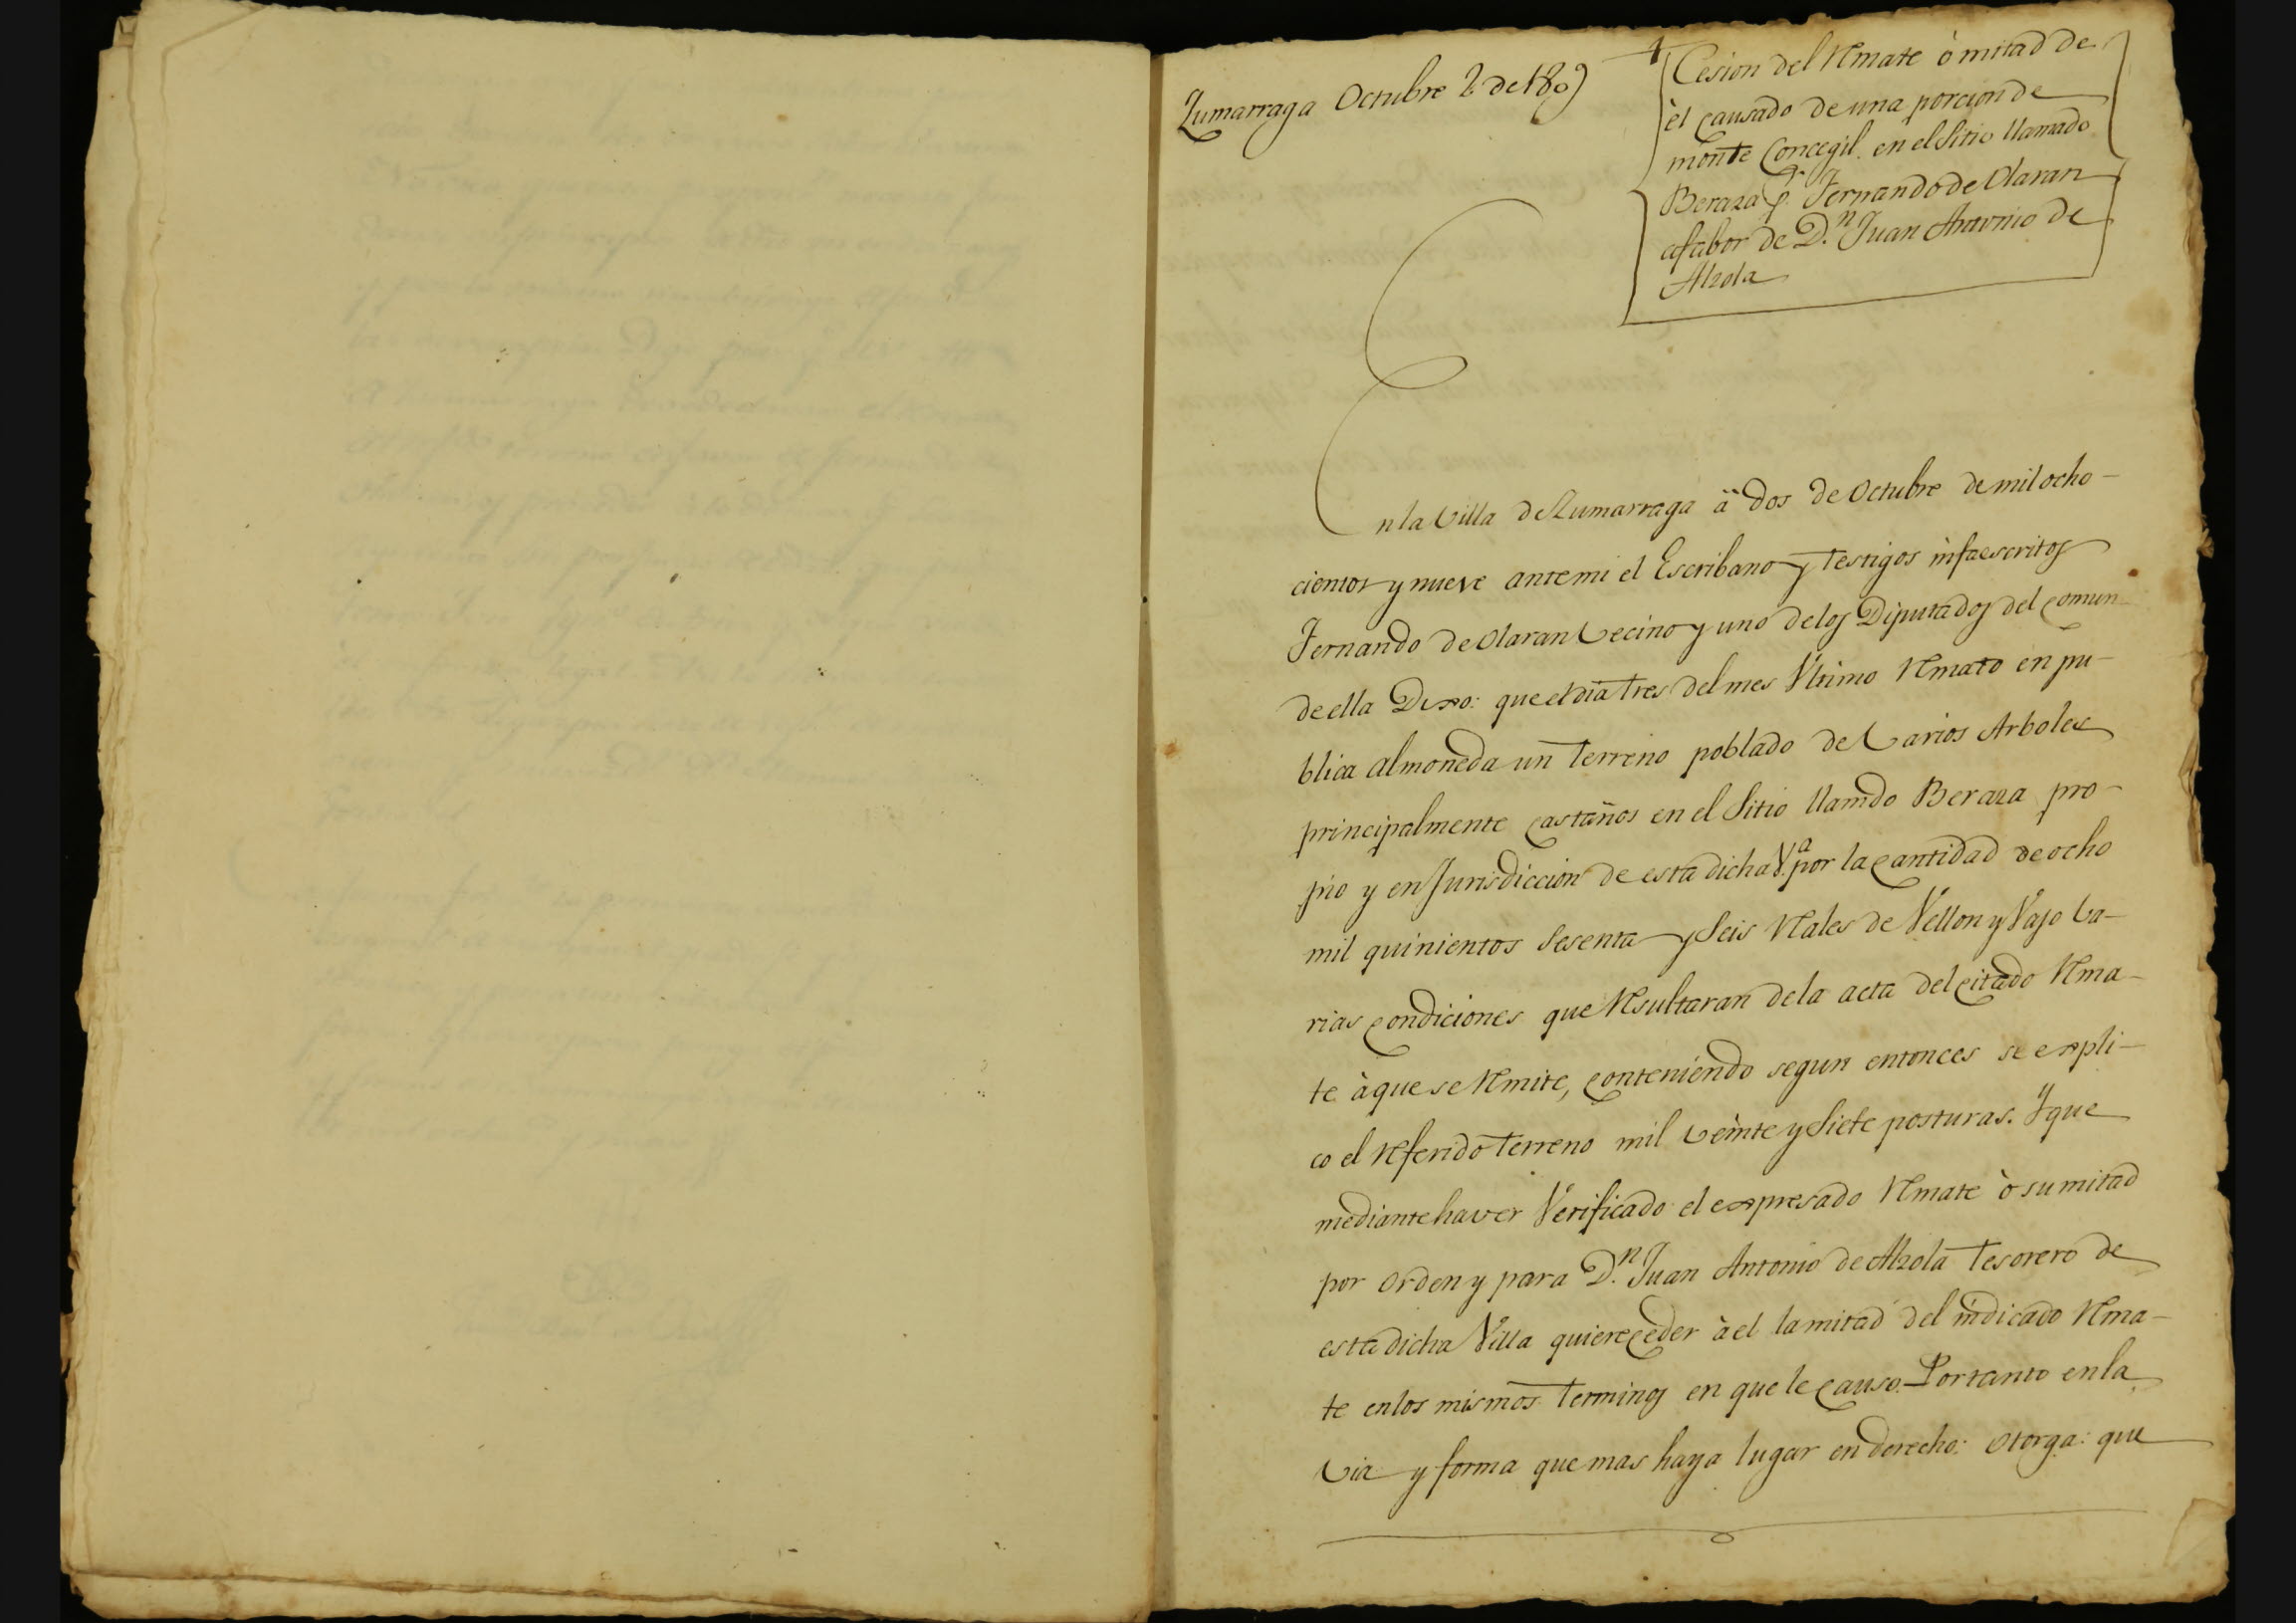 Zumarraga Octubre 2 de 1809
Cesion del Rmate ò mitad de
èl causado de una porcion de
monte Concegil en el Sitio llamado
Beraza p.r Fernando de Olaran
afabor de D.n Juan Antonio de
Alzola
En la Villa de Zumarraga à dos de Octubre de mil ocho-
cientos y nueve ante mi el Escribano y testigos infraescritos
Fernando de Olaran Vecino y uno de los Diputados del comun
de ella Dixo: que el dia tres del mes Ultimo Rmato en pu-
blica almoneda un terreno poblado de Varios Arboles
principalmente castaños en el Sitio llamdo Beraza pro-
pio y en Jurisdiccion de esta dicha V.a por la cantidad de ocho
mil quinientos Sesenta y Seis Rales de Vellon y Vajo Va-
rias condiciones que Rsultaran de la acta del citado Rma-
te à que se Rmite, conteniendo segun entonces se expli-
co el Rferido terreno mil veinte y Siete posturas. Y que
mediante haver Verificado el expresado Rmate ò su mitad
por Orden y para D.n Juan Antonio de Alzola Tesorero de
esta dicha Villa quiere ceder à el la mitad del indicado Rma-
te en los mismos terminos en que le causo. Por tanto en la
via y forma que mas haya lugar en derecho: Otorga: que